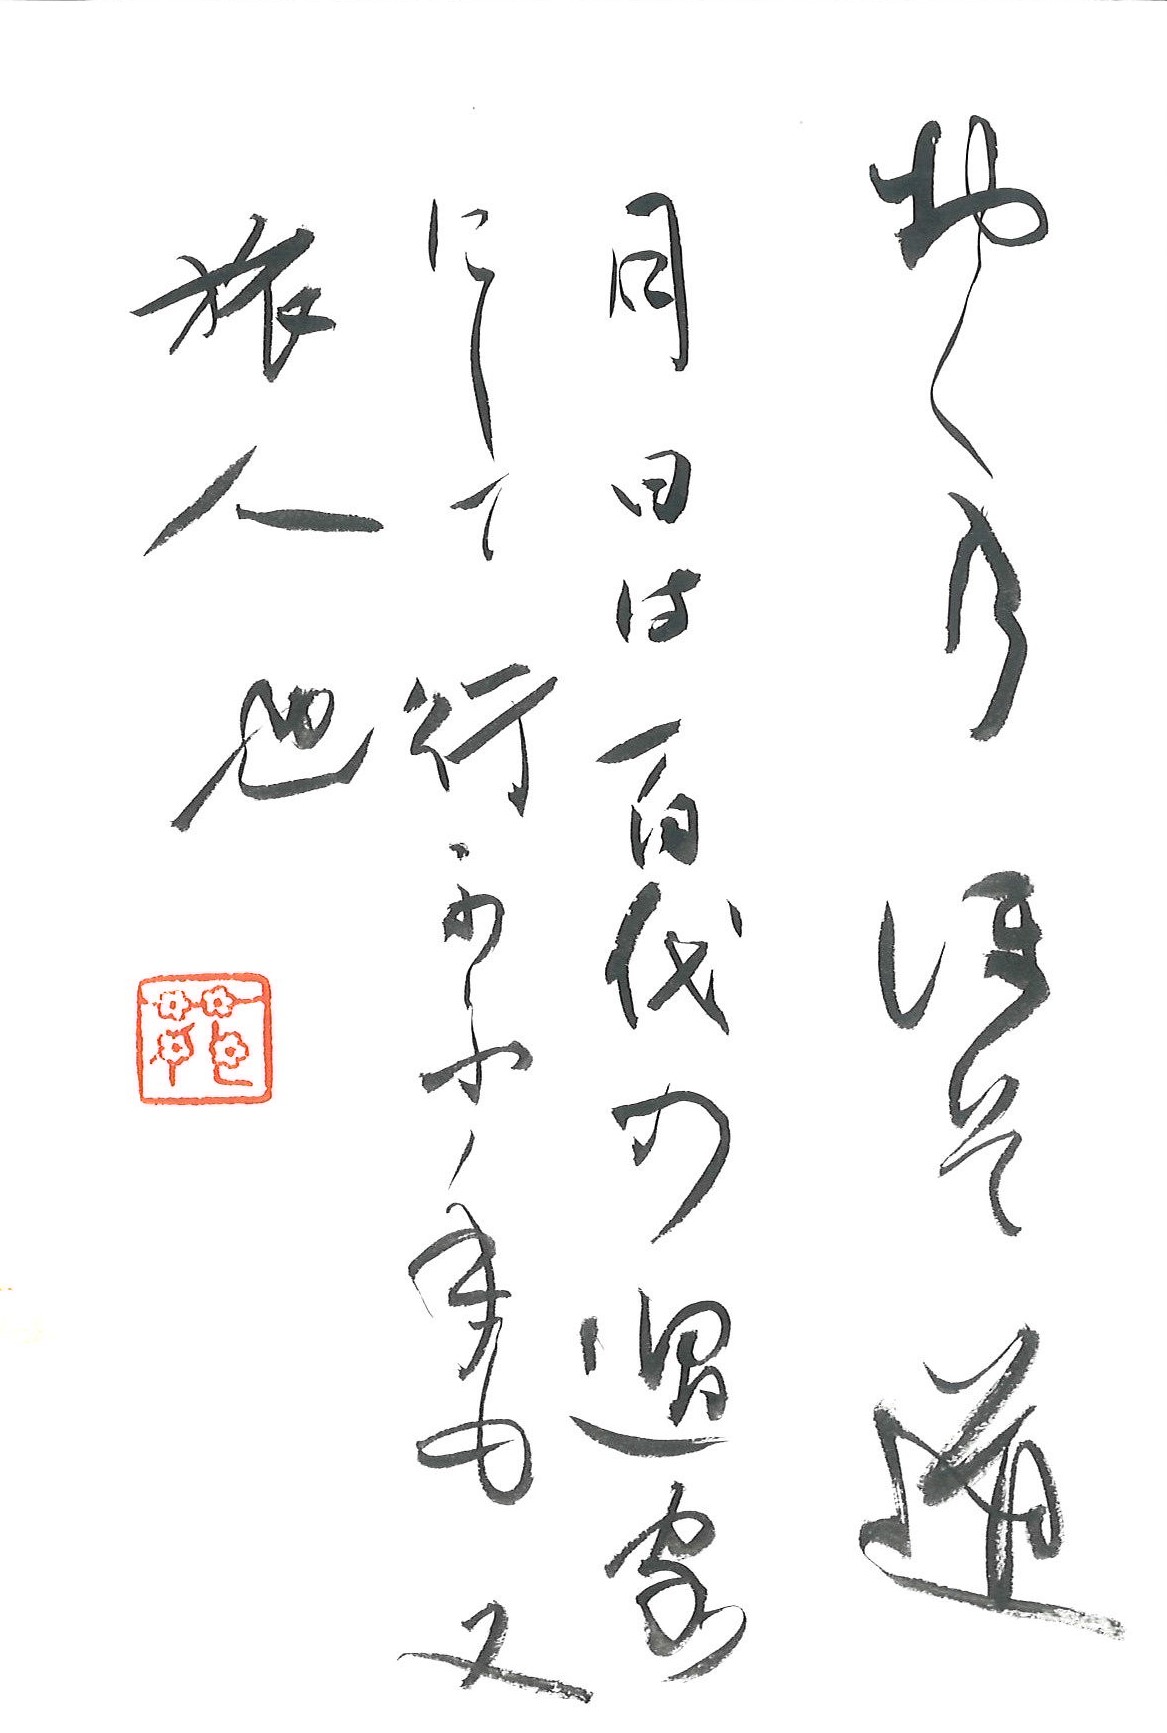 おくのほそ道
月日は百代の過客
にして行かふ年も又
旅人也